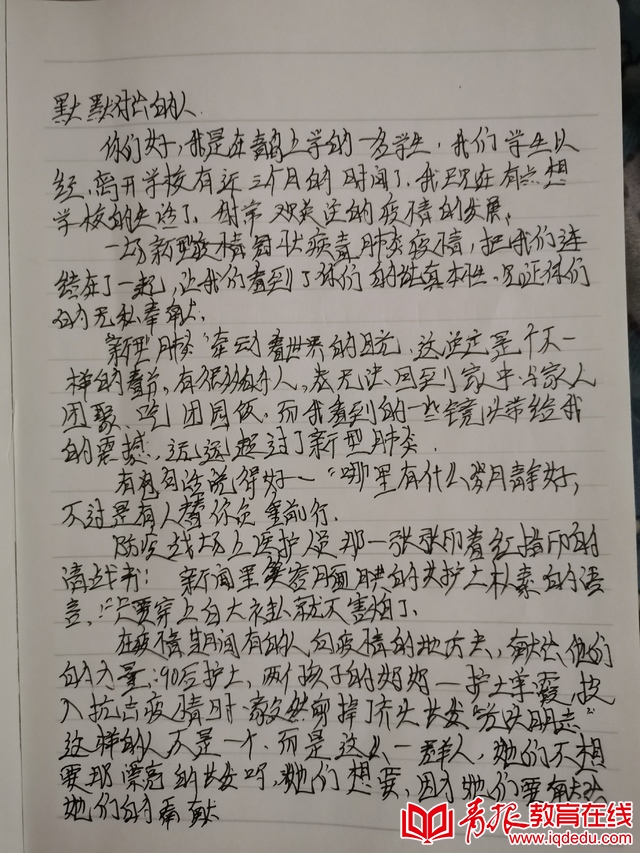 默默付出的人
你们好,我是在青岛上学的一名学生,我们学生以
经离开学校有近三个月的时间了,我现在有点想
学校的生活了,时常关注的疫情的发展。
一场新型疫情冠状病毒肺炎疫情,把我们连
结在了一起,让我们看到了你们的纯真本性,见证你们
的无私奉献。
新型肺炎牵动着世界的目光,这注定是个不一
样的春节,有很多的人,无法回到家中与家人
团聚、吃团园饭,而我看到的一些镜头带给我
的震撼,远远超过了新型肺炎.
有句话说得好一"哪里有什么岁月静好,
不过是有人替你负重前行.
防疫战场上医护人员那一张张印着红指印的
请战书;新闻里笑容腼腆的女护士朴素的语
言,"只要穿上白大衬就不害怕了.
在疫情期间有的人向疫情的地方去,奉献出他们
的力量,90后护士,两个孩子的妈妈一护士单霞,投
入抗击疫情时毅然剪掉了齐头长发"
这样的人不是一个,而是这么一群人,她们不想
要那漂亮的长发吗,她们想要,因为她们要奉献出
她们的奉献
青报教育在线
www.iqdedu.com